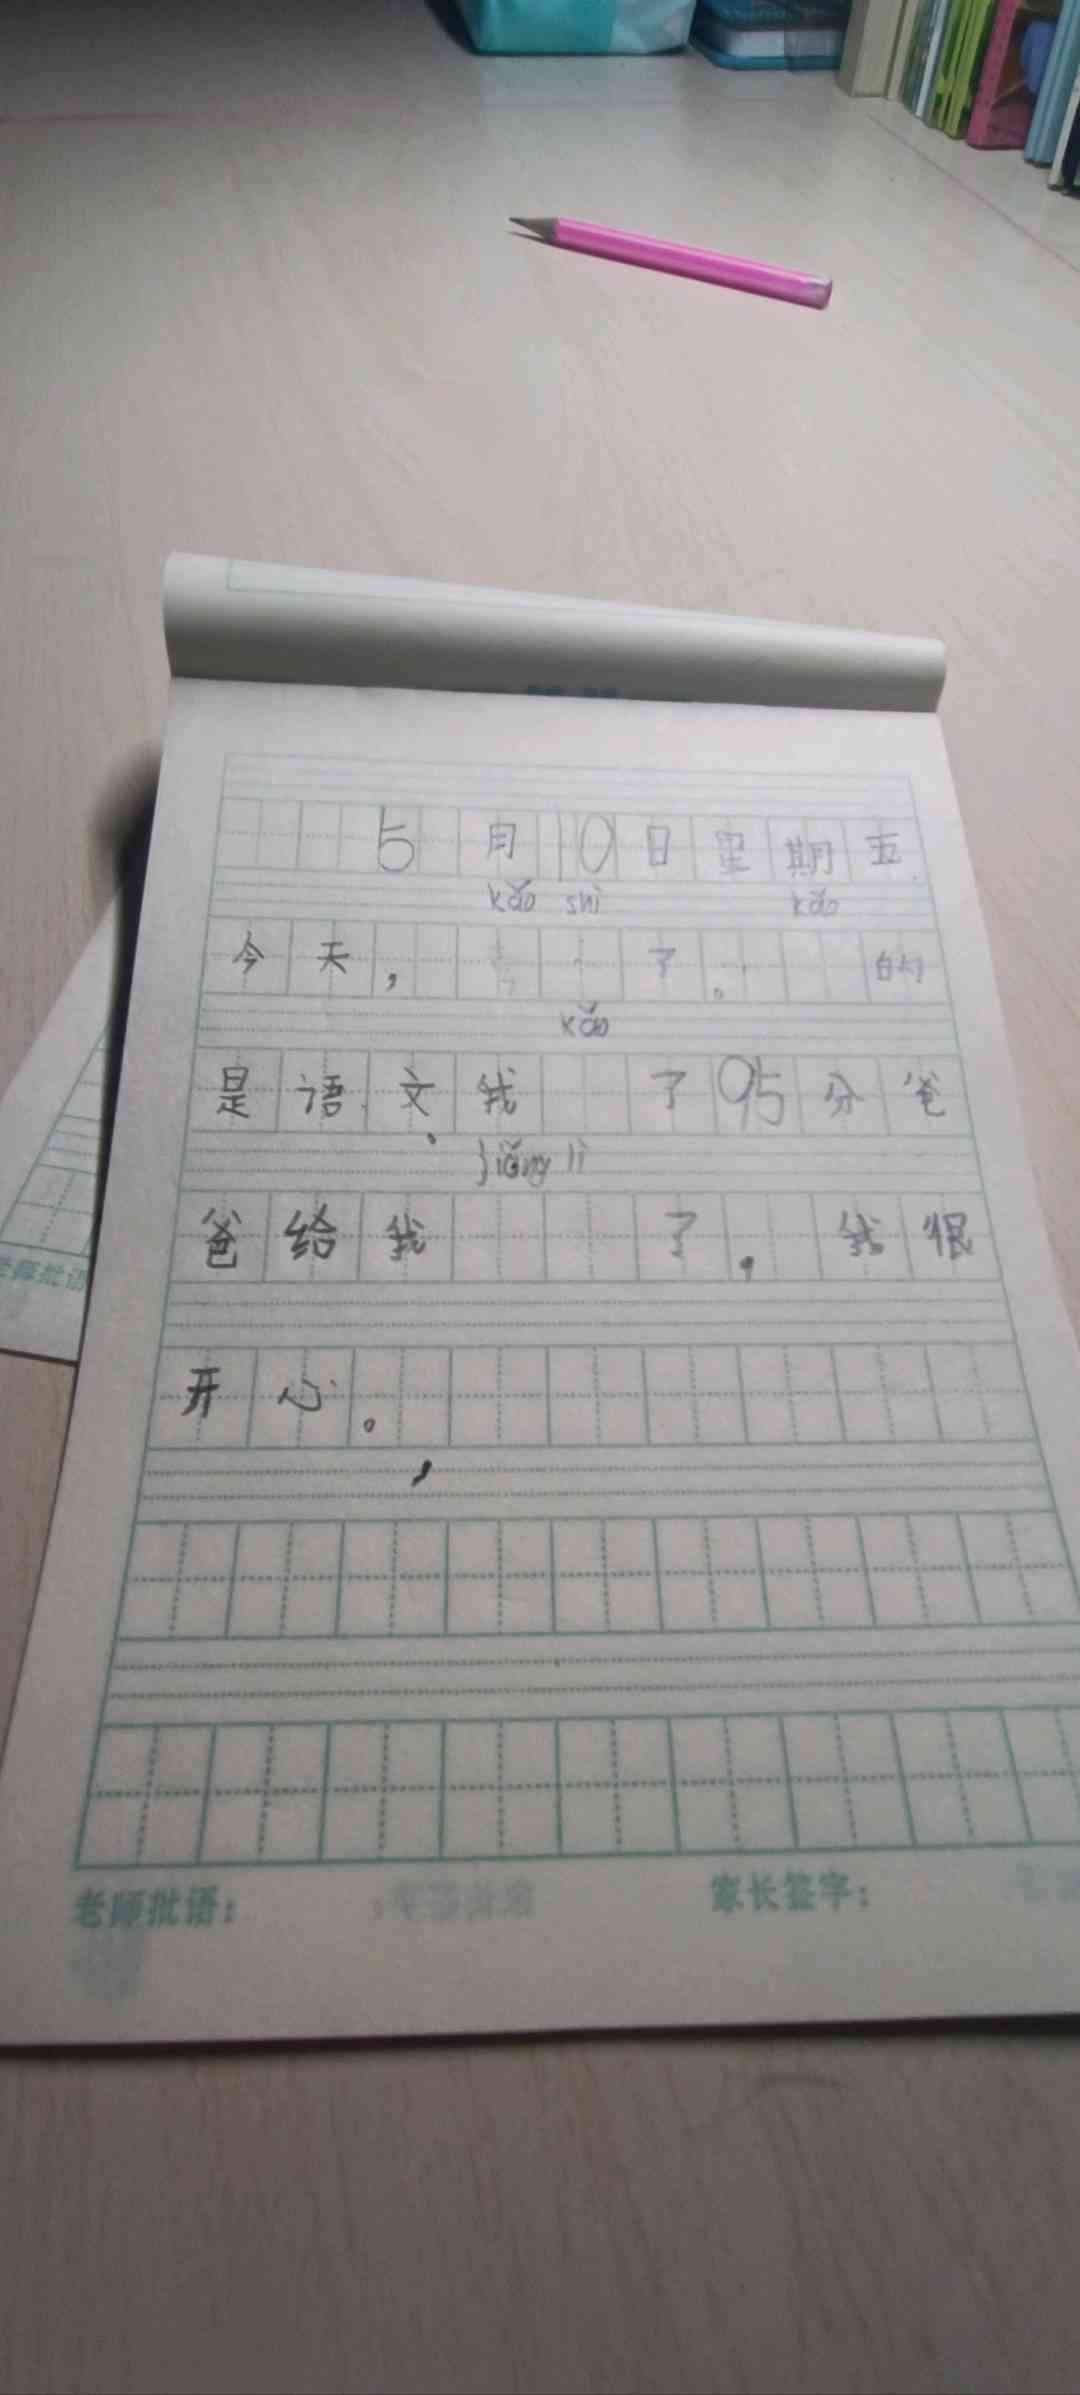 5月10日星期五
kǎo shì kǎo
今天,了。的
kǎo
是语文、我了95分爸
jiǎng lì
爸给我了.我很
开心。
,
老师批语: 家长签字:
老师批语